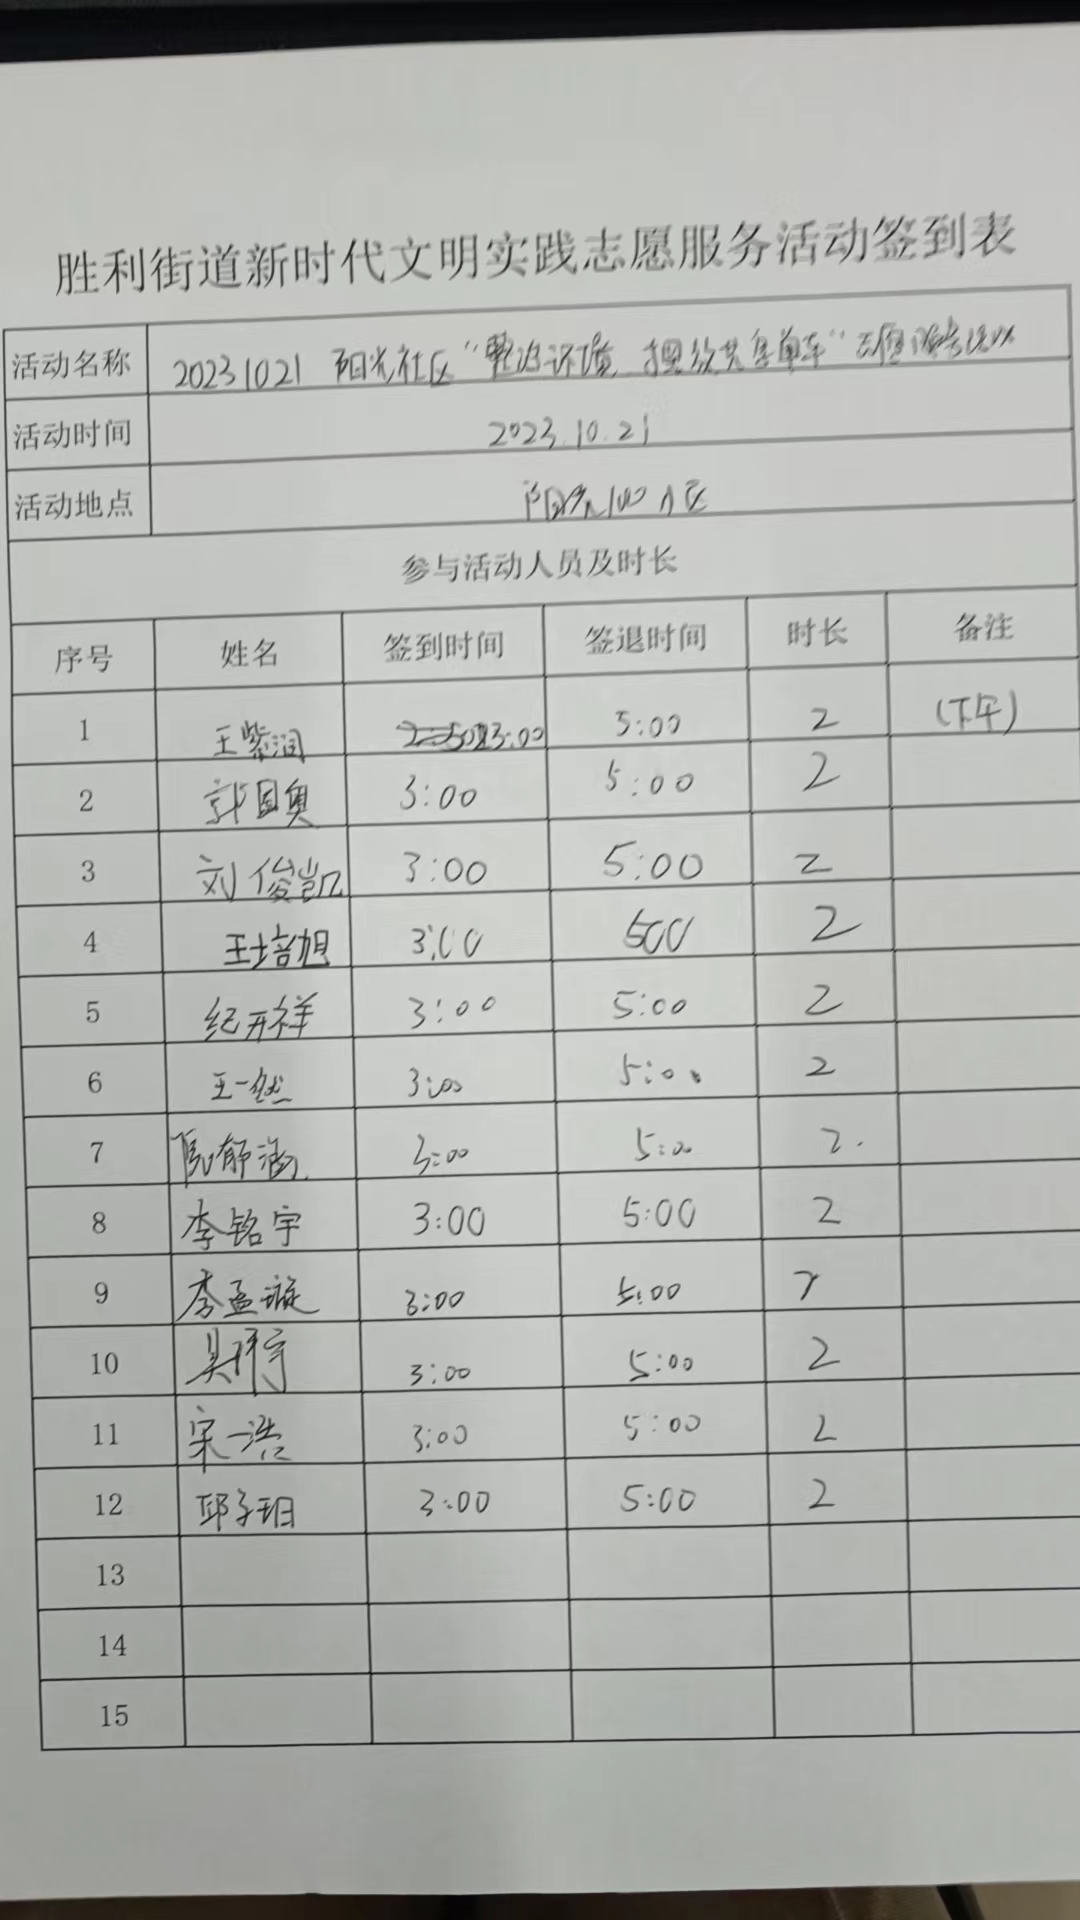 胜利街道新时代文明实践志愿服务活动签到表
活动名称 20231021 阳光社区“整治环境 摆放共享单车”志愿服务活动
活动时间 2023.10.21
活动地点 阳光100小区
参与活动人员及时长
序号 姓名 签到时间 签退时间 时长 备注
1 王紫润 3:00 5:00 2 (下午)
2 郭国奥 3:00 5:00 2
3 刘俊凯 3:00 5:00 2
4 王培旭 3:00 500 2
5 纪开祥 3:00 5:00 2
6 王一然 3:00 5:00 2
7 3:00 5:00 2.
8 李铭宇 3:00 5:00 2
9 李孟璇 3:00 5:00 2
10 3:00 5:00 2
11 宋一浩 3:00 5:00 2
12 邱子珀 3:00 5:00 2
13
14
15